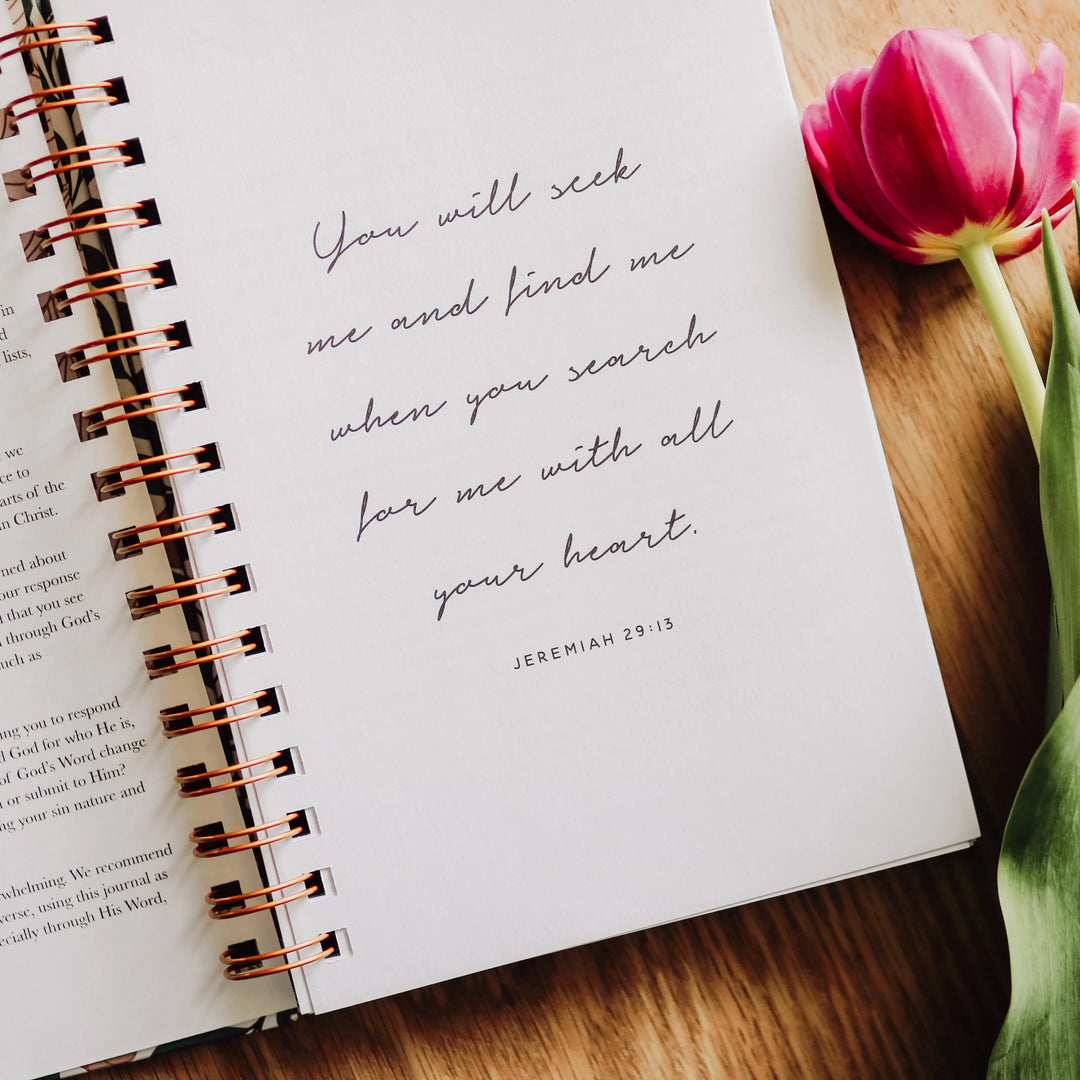 in
lists,
we
to
of the
in Christ.
about
our response
that you see
through God's
as
you to respond
God for who He is,
of God's Word change
or submit to Him?
your sin nature and
We recommend
using this journal as
through His Word,
You will seek
me and find me
when you search
for me with all
your heart.
JEREMIAH 29:13